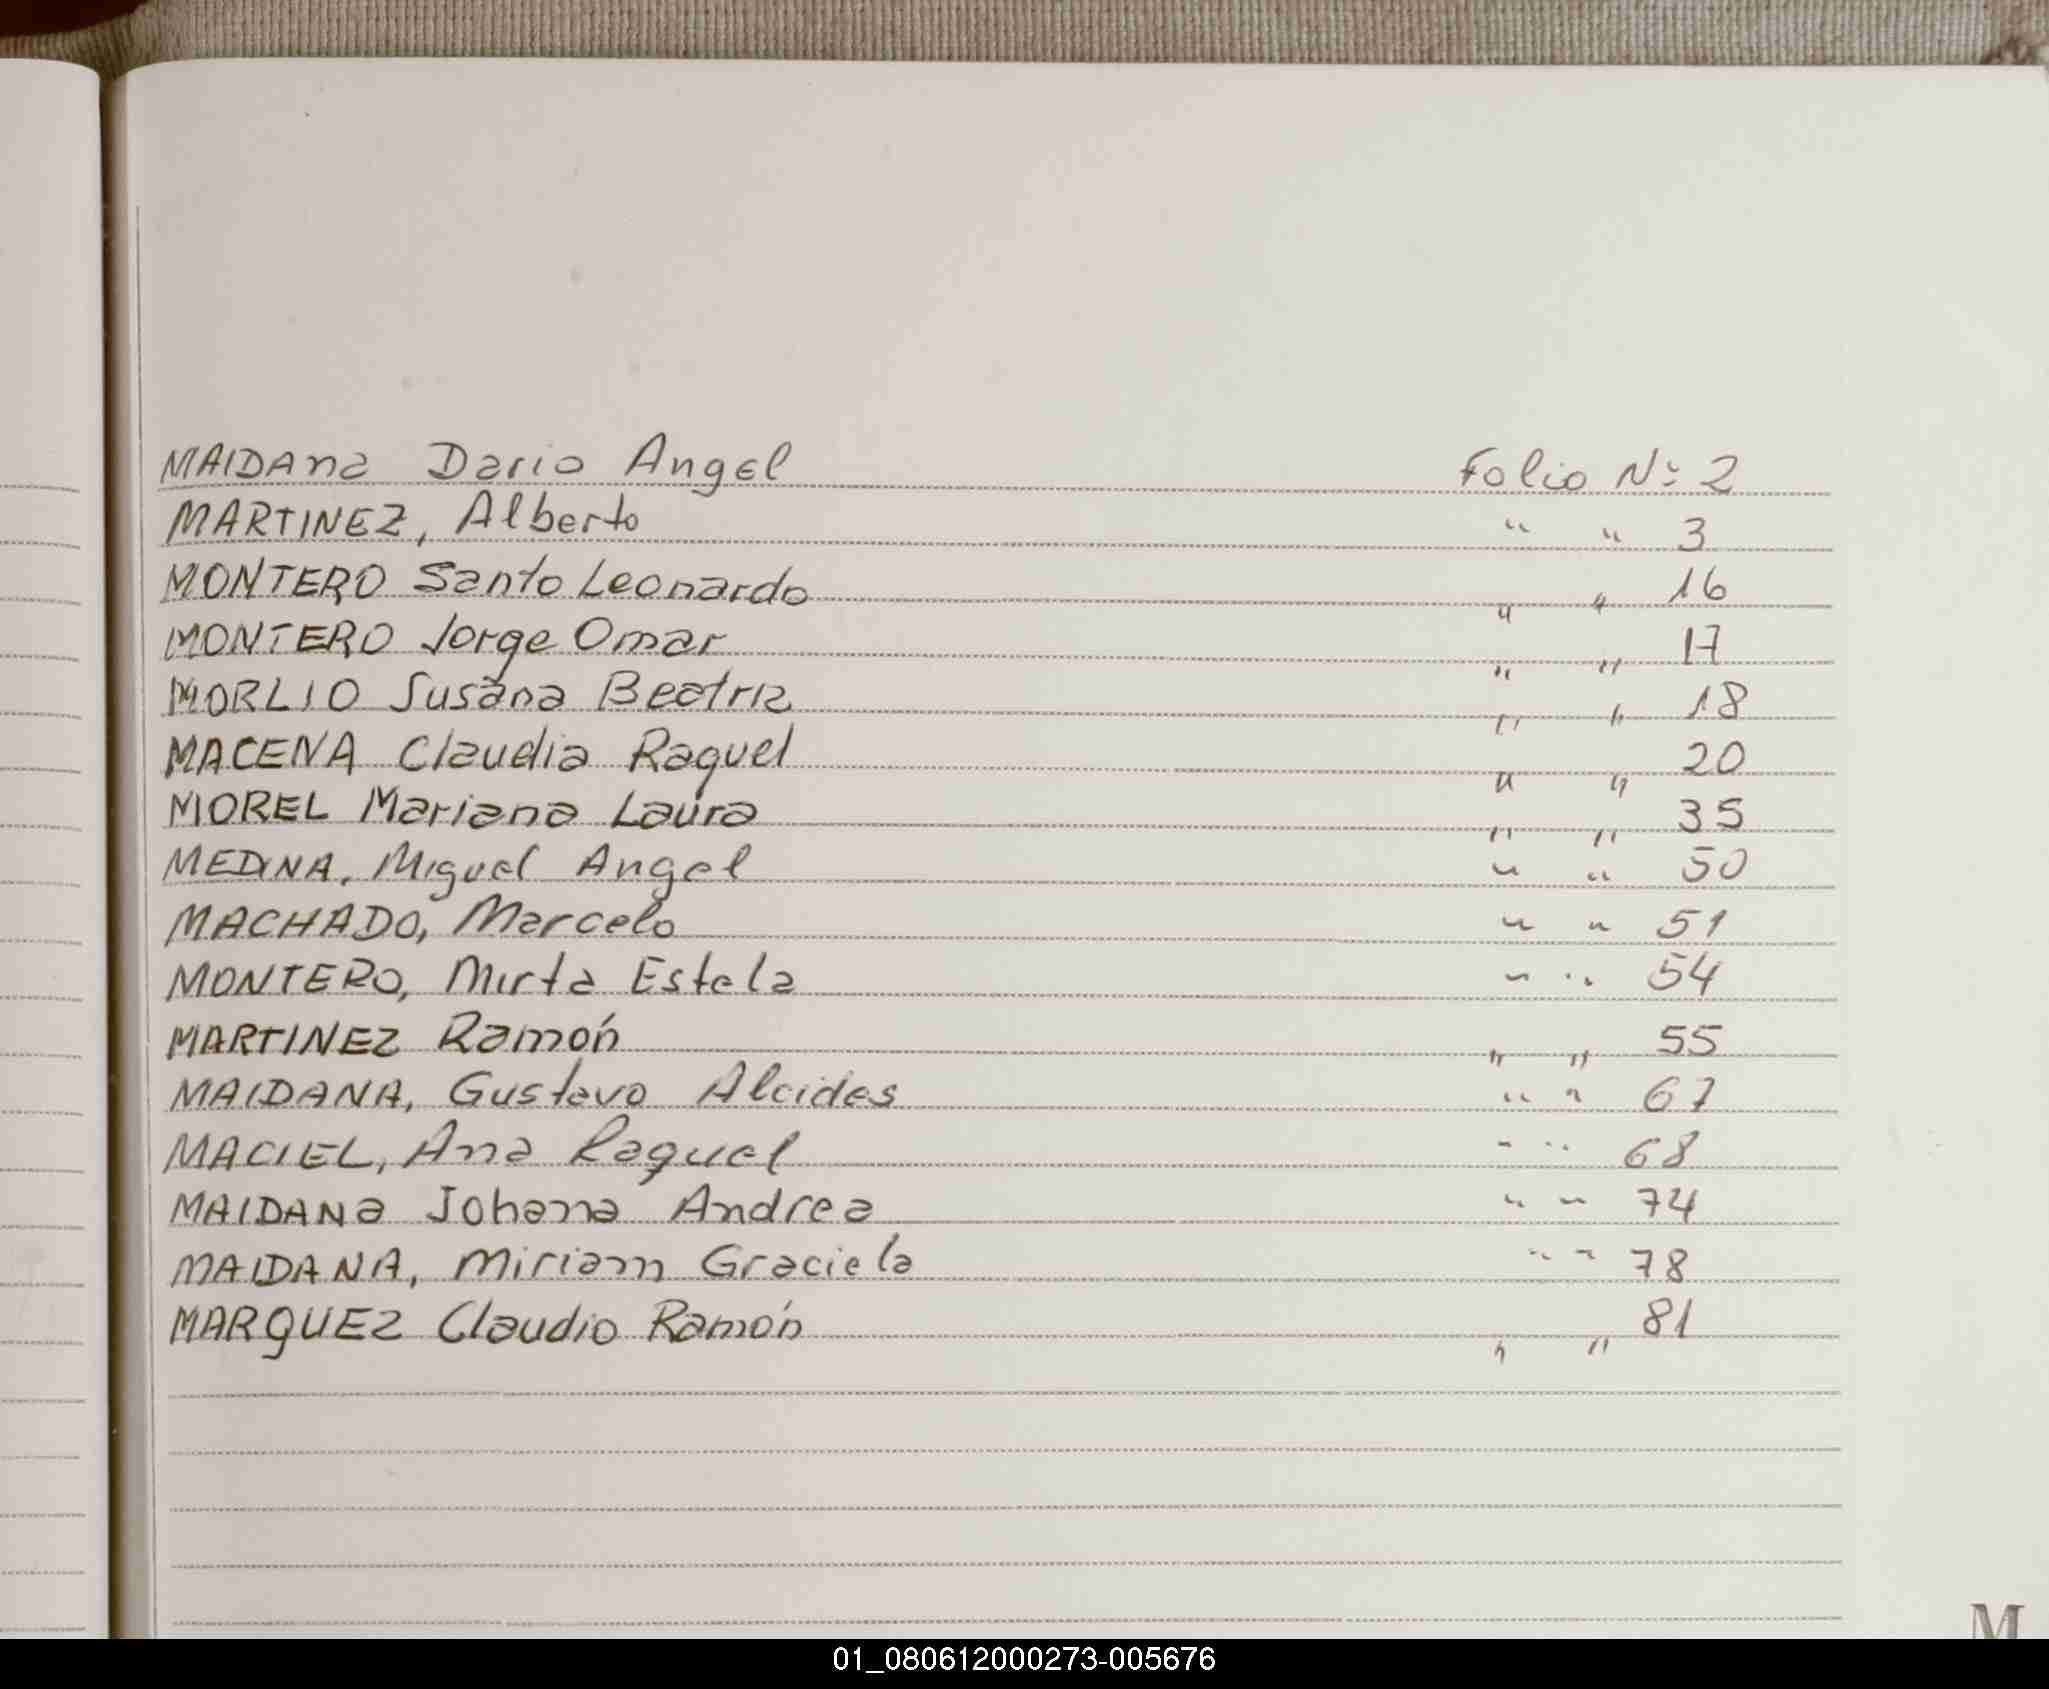 MAIDANa Dario Angel Folio Nº 2
MARTINEZ, Alberto " " 3
MONTERO Santo Leonardo " " 16
MONTERO Jorge Omar " " 17
MORLIO Susana Beatriz " " 18
MACENA Claudia Raquel " " 20
MOREL Mariana Laura " " 35
MEDINA, Miguel Angel " " 50
MACHADO, Marcelo " " 51
MONTERO, Mirta Estela " " 54
MARTINEZ Ramón " " 55
MAIDANA, Gustavo Alcides " " 67
MACIEL, Ana Raquel " " 68
MAIDANa Johana Andrea " " 74
MAIDANA, Miriam Graciela " " 78
MARQUEZ Claudio Ramón " " 81
M
01_080612000273-005676